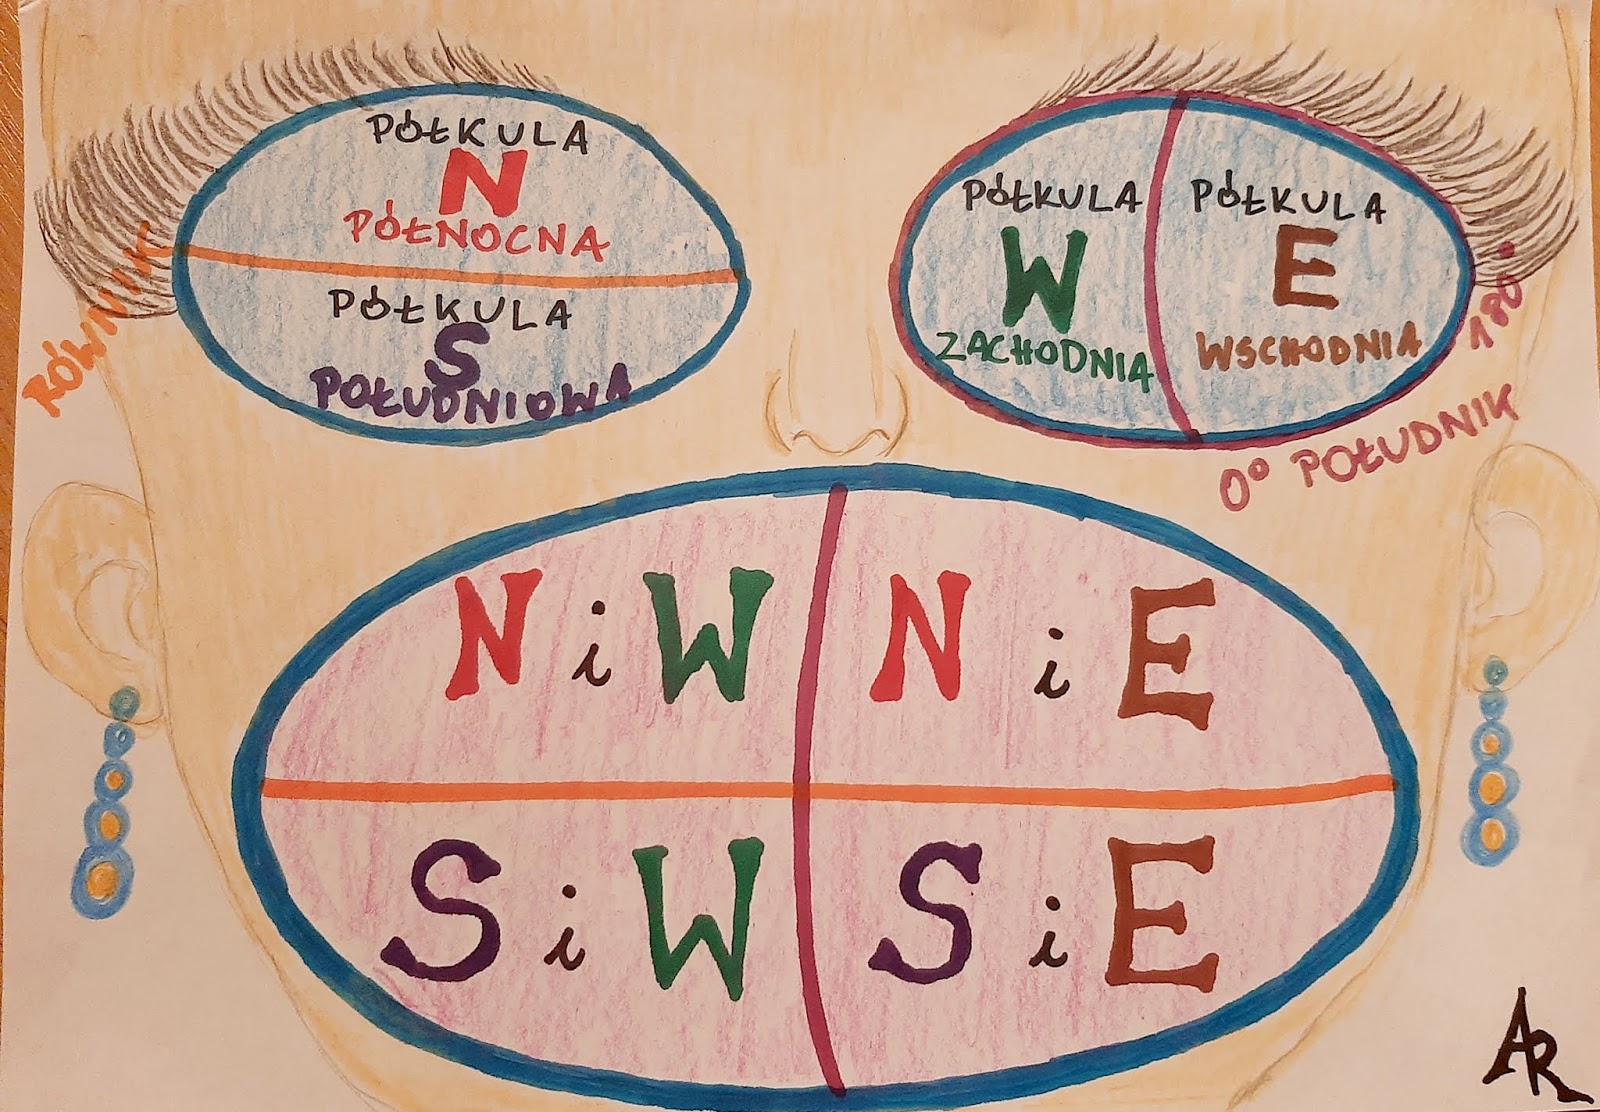 PÓŁKULA
N
PÓŁNOCNA
PÓŁKULA
S
POŁUDNIOWA
RÓWNIK
PÓŁKULA
W
ZACHODNIA
PÓŁKULA
E
WSCHODNIA
180°
0° POŁUDNIK
N i W
N i E
S i W
S i E
AR